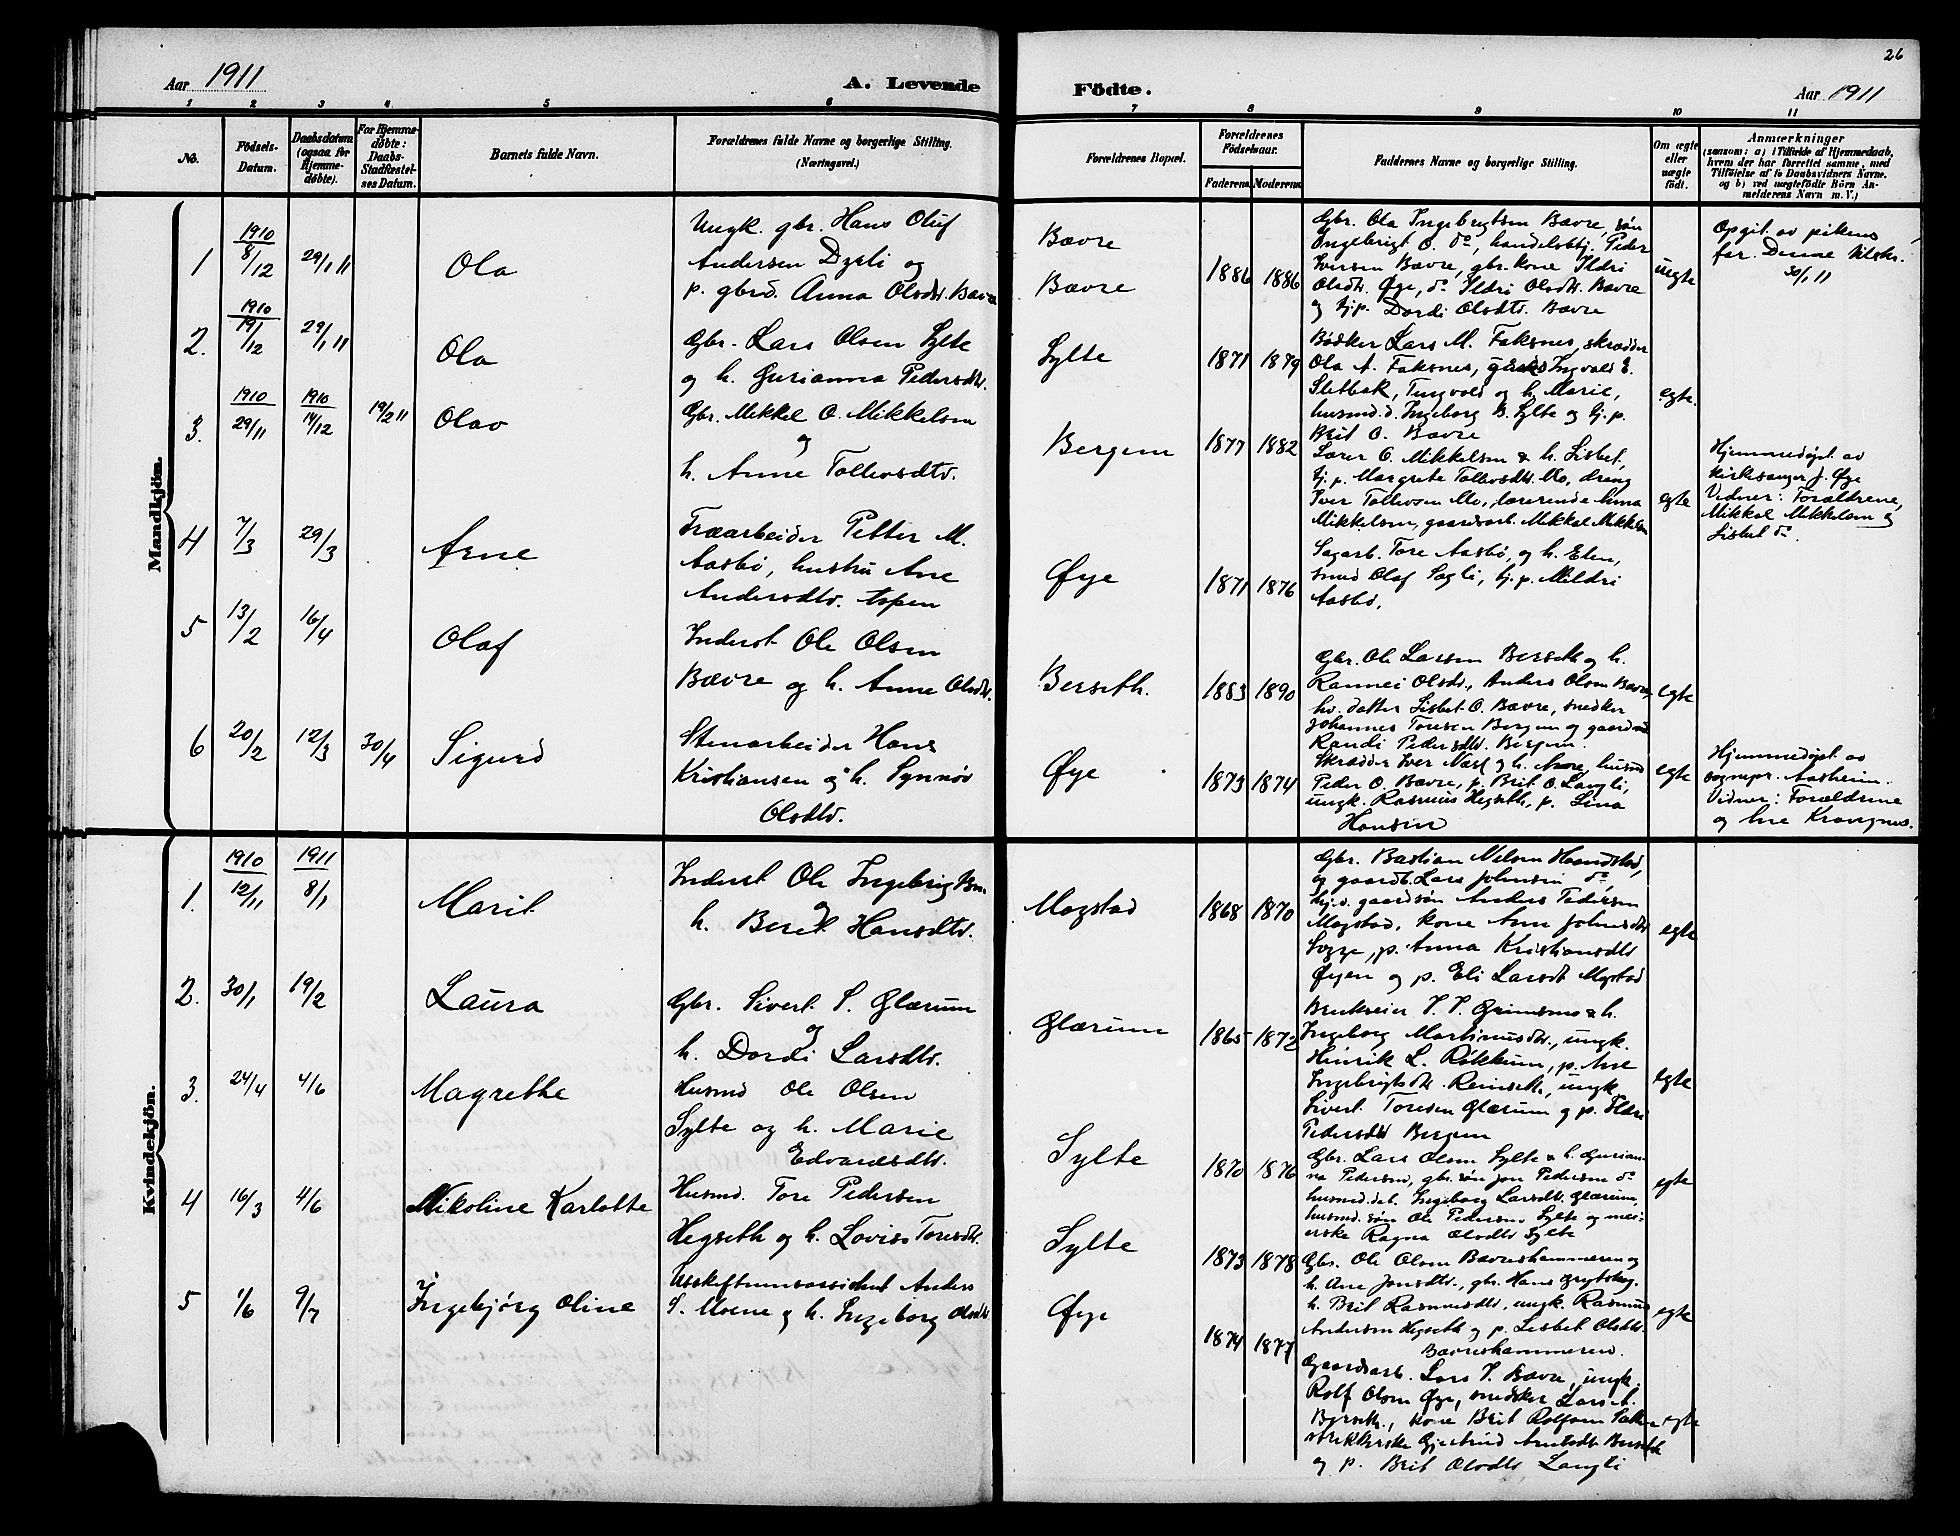 26
Aar 1911
A. Levende
Födte.
Aar 1911
1 2 3 4 5 6 7 8 9 10 11
No.
Födsels-
Datum.
Daabsdatum
(ogsaa for
Hjemme-
døbte).
For Hjemme-
døbte:
Daabs-
Stadfæstel-
ses Datum.
Barnets fulde Navn.
Forældrenes fulde Navne og borgerlige Stilling.
(Næringsvei.)
Forældrenes Bopæl.
Forældrenes
Födselsaar.
Faderens.
Moderens.
Faddernes Navne og borgerlige Stilling.
Om ægte
eller
uægte
født.
Anmærkninger
(saasom: a) i Tilfælde af Hjemmedaab,
hvem der har forrettet samme, med
Tilföielse af to Daabsvidners Navne,
og b) ved uægtefödte Börn An-
melderens Navn m. V.)
Mandkjön.
1
1910
8/12
29/1 11
Ola
Ungk. gbr. Hans Oluf
Andersen Dyrli og
p. gbrd. Anna Olsdtr. Bævre
Bævre
Bævre
1886
1886
Gbr. Ola Ingebrigtsen Bævre, søn
Ingebrigt O. do, handelsbtj. Peder
Iversen Bævre, gbr. kone Ildri
Olsdtr. Øye, do Ildri Olsdtr. Bævre
og tj.p. Dordi Olsdtr. Bævre
uegte
Opgit av pikens
far. Denne tilskr.
30/1 11
2.
1910
19/12
29/1 11
Ola
Gbr. Lars Olsen Sylte
og h. Gurianna Pedersdtr.
Sylte
1871
1879
Bødker Lars M. Faksnes, skrædder
Ola A. Faksnes, Ingvald E.
Sletbak, Tungvold og h. Marie,
husmd.d. Ingeborg B. Sylte og tj.p.
Brit O. Bævre
egte.
3.
1910
29/11
1910
14/12
19/2 11
Olav
Gbr. Mikkel O. Mikkelsen
og
h. Anne Tollevsdtr.
Bergem
1877
1882
Lærer O. Mikkelsen & h. Lisbet,
tj.p. Margrete Tollevsdtr. Mo, dreng
Iver Tollevsen Mo, lærerinde Anna
Mikkelsen, gaardsarb. Mikkal Mikkelsen
egte
Hjemmedøpt av
kirkesanger J. Øye
Vidner: Forældrene,
Mikkal Mikkelsen og
Lisbet do.
4
7/3
29/3
Arne
Træarbeider Petter M.
Aasbø, hustru Ane
Andersdtr. Aspen
Øye
1871
1876
Sagarb. Tore Aasbø, og h. Elen,
smed Olaf Sagli, tj.p. Mildri
Aasbø.
5
13/2
16/4
Olaf
Inderst Ole Olsen
Bævre og h. Anne Olsdtr.
Berseth.
1883
1890
Gbr. Ole Larsen Berseth og h.
Rannei Olsdtr., Anders Olsen Bævre,
hv. datter Lisbet O. Bævre, snedker
Johannes Toresen Bergem og gaardmd
Randi Pedersdtr. Bergem.
egte
6
20/2
12/3
30/4
Sigurd
Stenarbeider Hans
Kristiansen og h. Synnøv
Olsdtr.
Øye
1873
1874
Skrædder Iver Næss og h. Anne, husmd
Peder O. Bævre, p. Brit O. Langli,
ungk. Rasmus Hegseth, p. Lina
Hansen
egte
Hjemmedøpt av
sognepr. Aasheim.
Vidner: Forældrene
og Ane Krangnes.
Kvindekjön.
1.
1910
12/11
1911
8/1
Marit
Inderst Ole Ingebrigtsen
og
h. Beret Hansdtr.
Mogstad
1868
1870
Gbr. Bastian Nilsen Handstad,
og gaardbr. Lars Johnsen do,
tj.d. gaardsøn Anders Pedersen
Mogstad, kone Ann Johnsdtr.
Sogge, p. Anna Kristiansdtr
Øyen og p. Eli Larsdt Mogstad
egte
2.
30/1
19/2
Laura
Gbr. Sivert S. Glærum
og
h. Dordi Larsdtr.
Glærum
1865
1872
Brukseier T. T. Grimsmo & h.
Ingeborg Martinusdtr., ungk.
Hinrik L. Røkkum, p. Ane
Ingebrigtsdtr. Reinseth, ungk.
Sivert Toresen Glærum og p. Ildri
Pedersdtr Bergem
egte
3.
24/4
4/6
Magrethe
Husmd Ole Olsen
Sylte og h. Marie
Edvardsdtr.
Sylte
1870
1876
Gbr. Lars Olsen Sylte & h. Gurian-
na Pedersen, gbr. søn Jon Pedersen do
husmd.dat. Ingeborg Larsdtr. Glærum,
husmd. søn Ole Pedersen Sylte og mei-
erske Ragna Olsdtr Sylte
egte
4
16/3
4/6
Nikoline Karlotte
Husmd. Tore Pedersen
Hegseth og h. Lovise Toresdtr.
Sylte
1873
1878
Gbr. Ole Olsen Bævreshammeren og
h. Ane Jonsdtr., gbr. Hans Grytskog,
h. Brit Rasmusdtr., ungk. Rasmus
Andersen Hegseth og p. Lisbet Olsdtr.
Bævreshammeren.
egte
5
1/6
9/7
Ingebjørg Oline
Utskiftningsassistent Anders
S. Moene og h. Ingeborg Olsdtr
Øye
1874
1877
Gaardsarb. Lars I. Bævre, ungk.
Rolf Olsen Øye, snedker Lars A.
Berseth, kone Brit Rolfsen
strikkerske Gjertrud Arntsdtr Berseth
og p. Brit Olsdtr Langli
egte